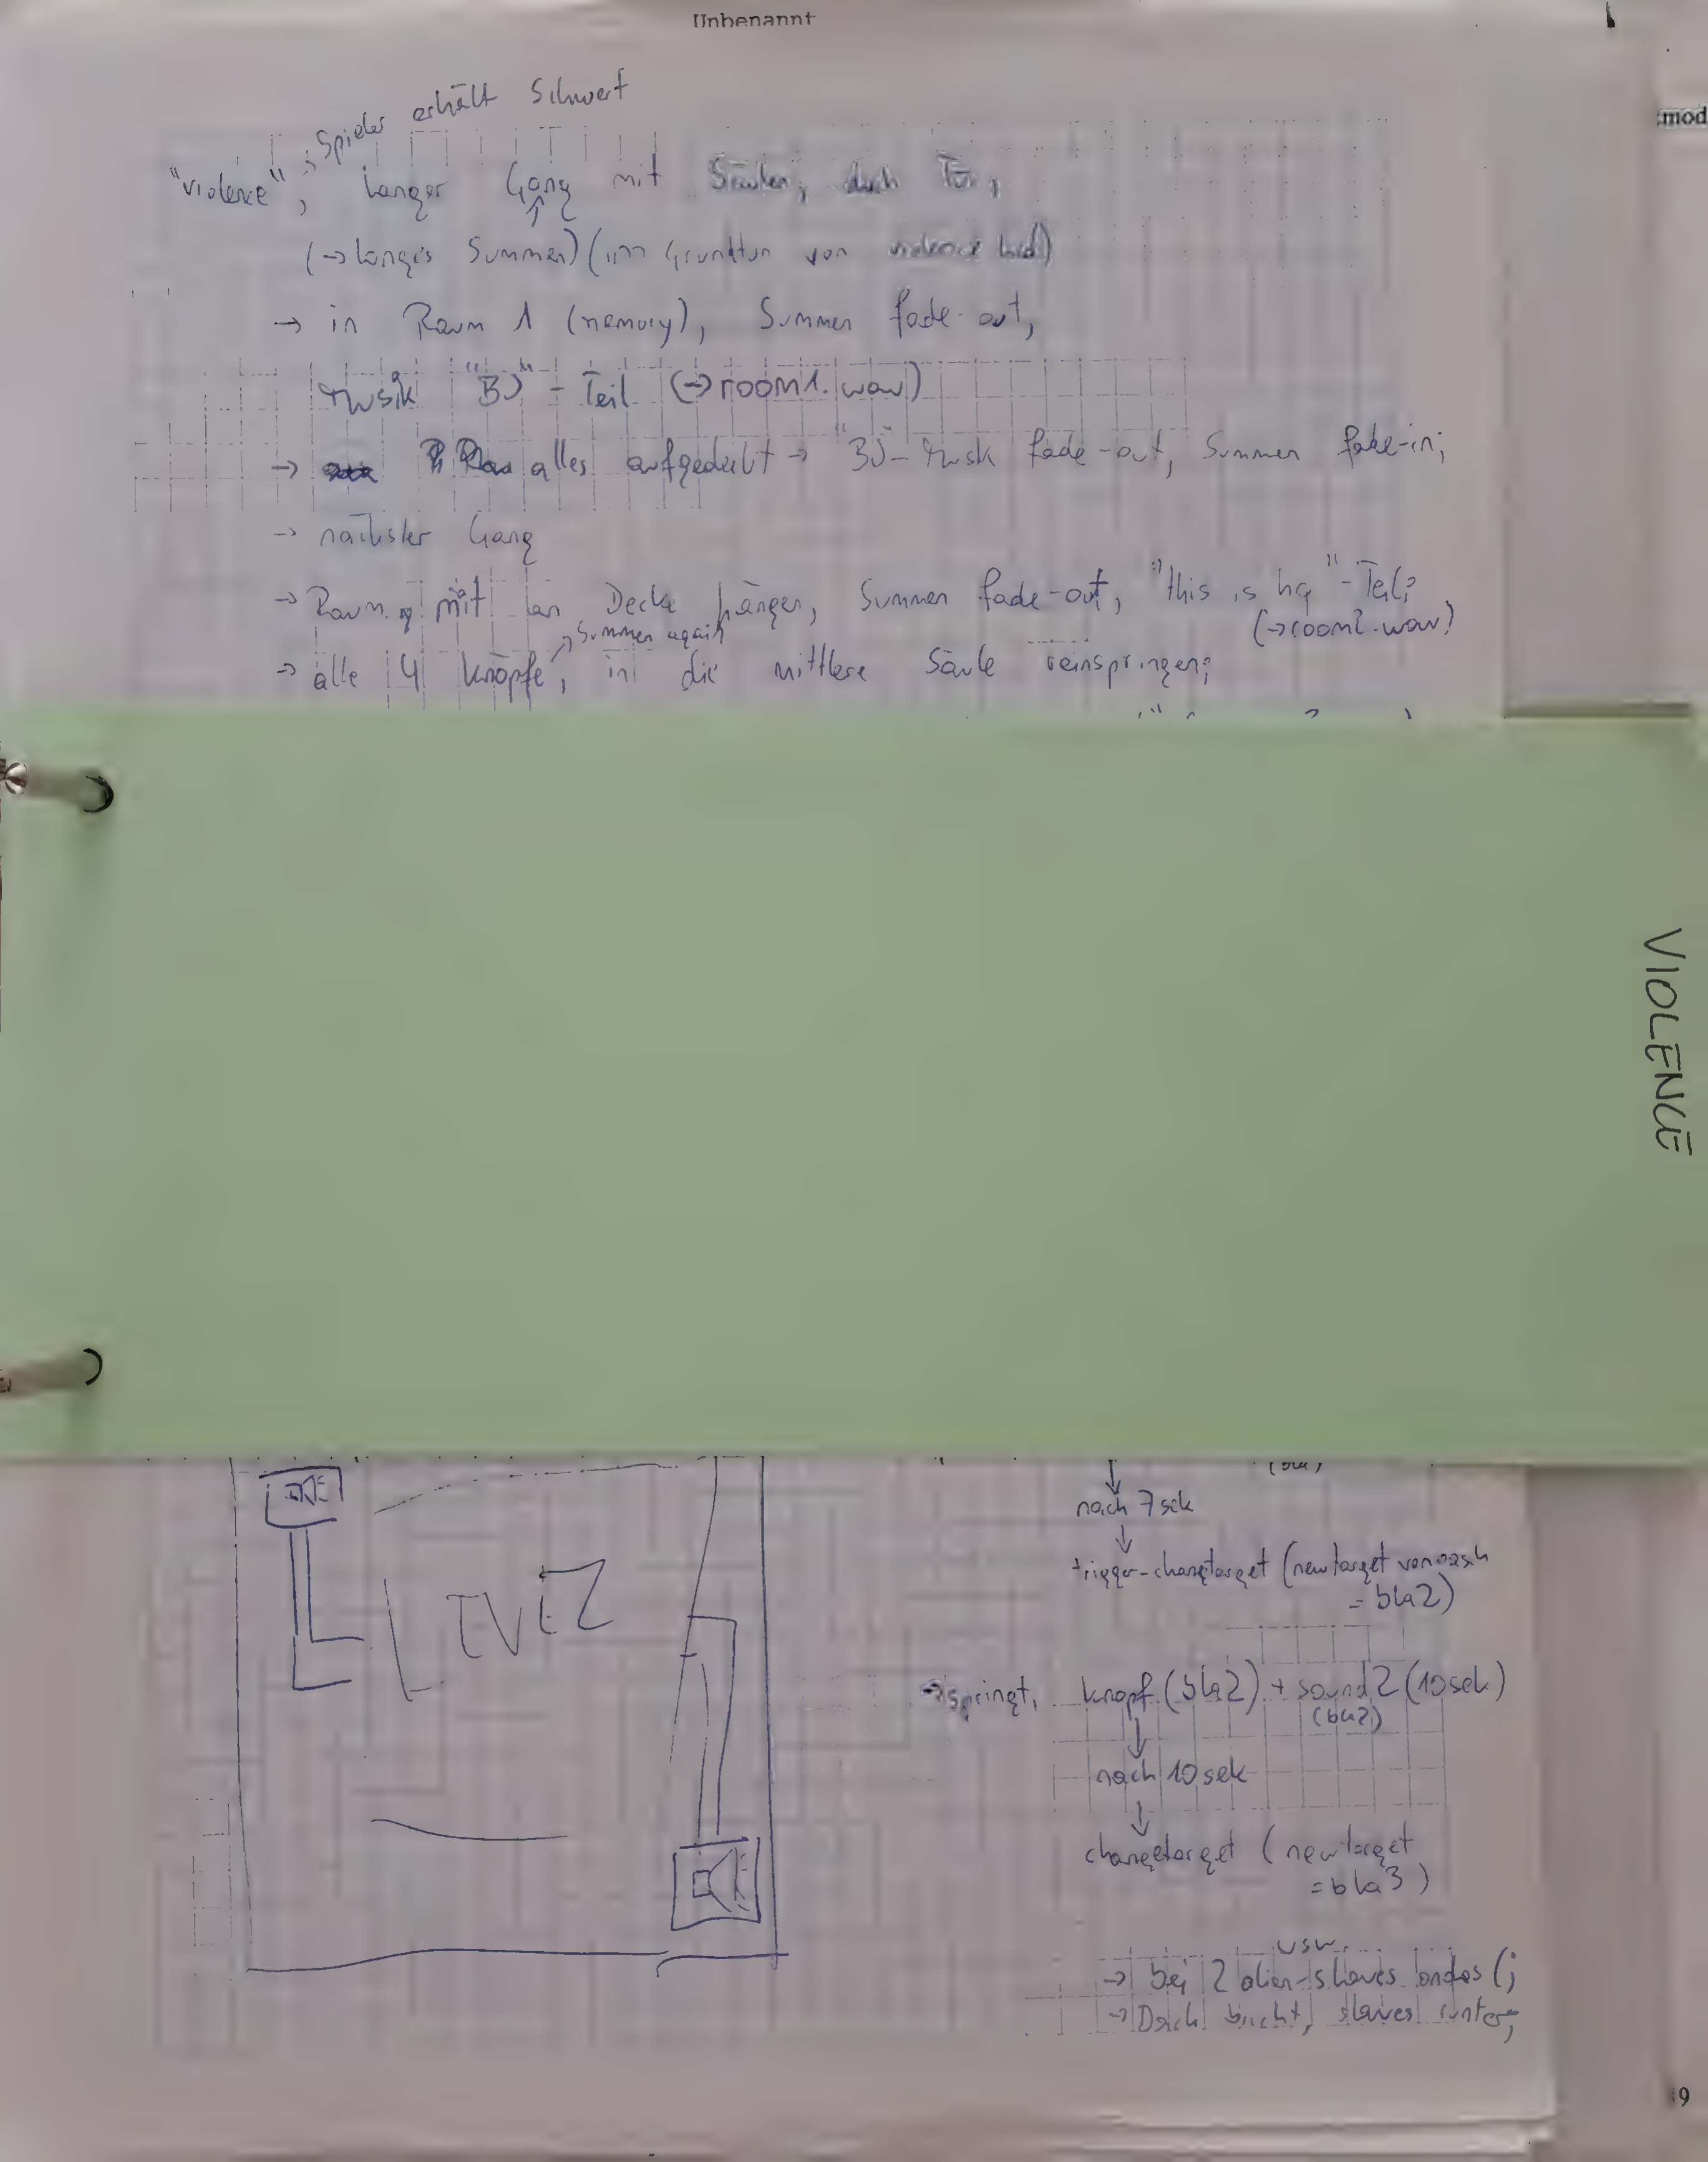 Unbenannt
:mod
Spieler erhält Schwert
"violence", langer Gang mit Säulen, durch Tür,
(→ langes Summen) (im Grundton von violence
→ in Raum 1 (memory), Summen fade-out,
Musik "BJ" - Teil (→ room1.wav)
→ alles aufgedeckt → "BJ"-Musik fade-out, Summen fade-in;
→ nächster Gang
→ Raum mit an Decke hängen, Summen fade-out, "this is hq"-Teil;
(→ room2.wav)
→ Summen again
→ alle 4 Knöpfe, in die mittlere Säule reinspringen;
VIOLENCE
nach 7 sek
trigger-changetarget (newtarget von
= bla2)
LEVEL
→ springt, knopf (bla2) + sound 2 (10 sek)
(bla2)
nach 10 sek
changetarget (newtarget
= bla3)
usw.
→ bei 2 alien-slaves anders (;
→ Dach bricht, slaves runter;
9